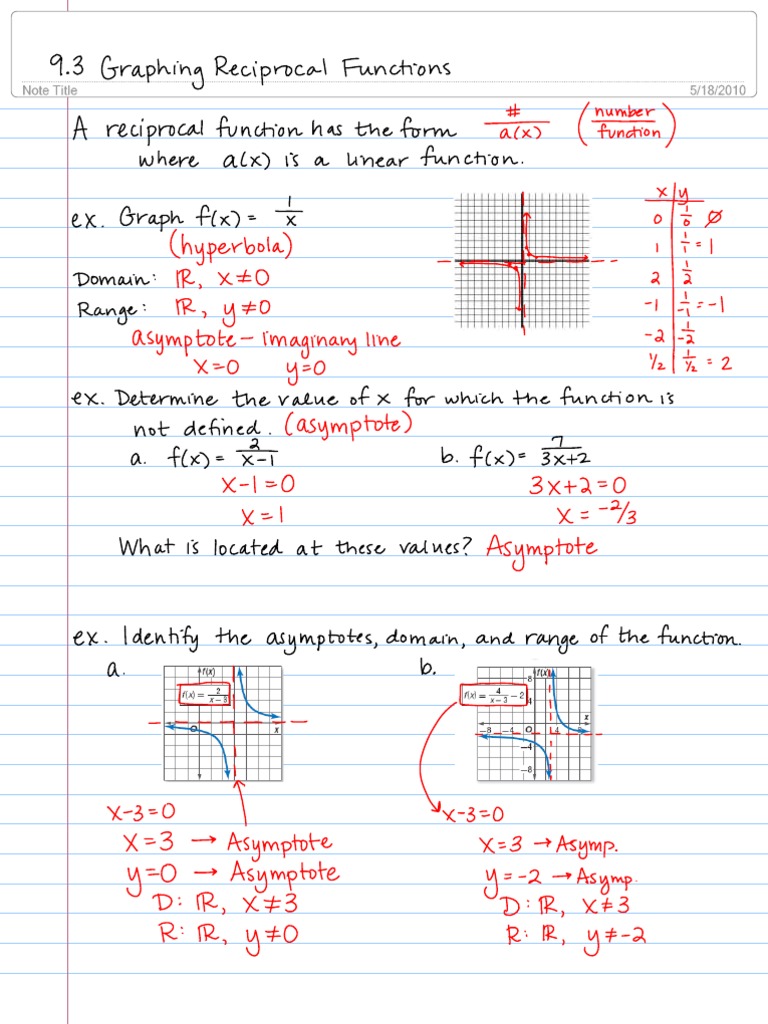 9.3 Graphing Reciprocal Functions
Note Title 5/18/2010
A reciprocal function has the form #/a(x) (number/function)
where a(x) is a linear function.
ex. Graph f(x) = 1/x
(hyperbola)
Domain: ℝ, x≠0
Range: ℝ, y≠0
asymptote – imaginary line
x=0 y=0
x | y
0 | 1/0 ∅
1 | 1/1 = 1
2 | 1/2
-1 | 1/-1 = -1
-2 | 1/-2
1/2 | 1/1/2 = 2
ex. Determine the value of x for which the function is
not defined. (asymptote)
a. f(x) = 2/x-1 b. f(x) = 7/3x+2
x-1=0 3x+2=0
x=1 x = -2/3
What is located at these values? Asymptote
ex. Identify the asymptotes, domain, and range of the function.
a. b.
f(x)
f(x) = 2/x-3
O x
f(x)
f(x) = 4/x-3 - 2
8
4
x
-8 -4 O 4
-4
-8
x-3=0 x-3=0
x=3 → Asymptote x=3 → Asymp.
y=0 → Asymptote y=-2 → Asymp.
D: ℝ, x≠3 D: ℝ, x≠3
R: ℝ, y≠0 R: ℝ, y≠-2